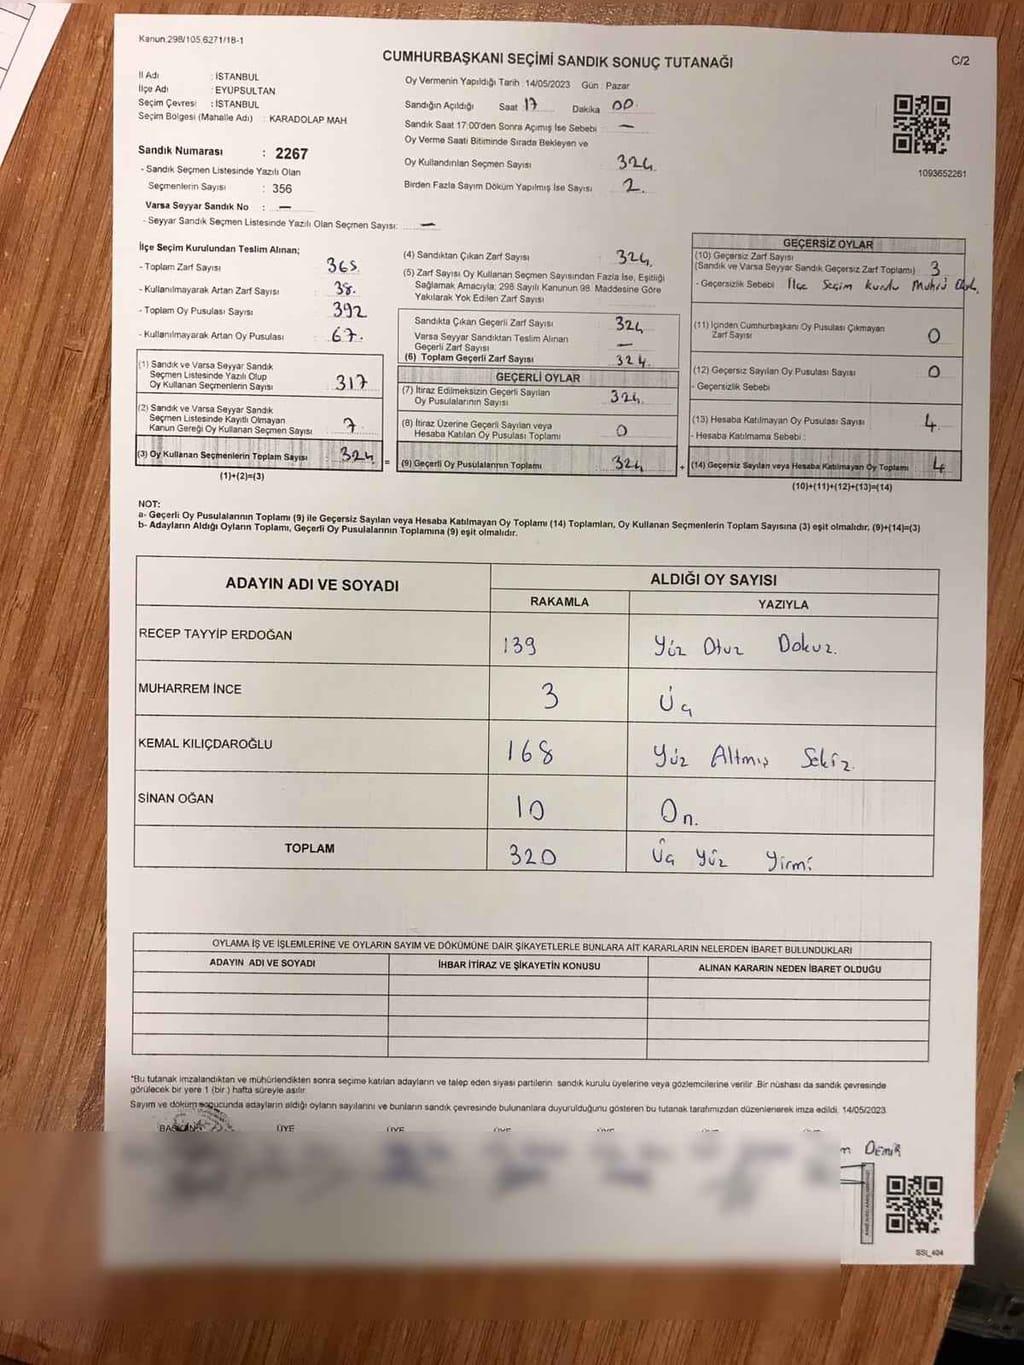 Kanun:298/105,6271/18-1
CUMHURBAŞKANI SEÇİMİ SANDIK SONUÇ TUTANAĞI
C/2
İl Adı : İSTANBUL
İlçe Adı : EYÜPSULTAN
Seçim Çevresi : İSTANBUL
Seçim Bölgesi (Mahalle Adı) : KARADOLAP MAH
Oy Vermenin Yapıldığı Tarih : 14/05/2023 Gün : Pazar
Sandığın Açıldığı Saat 17 Dakika 00
Sandık Saat 17:00'den Sonra Açımış İse Sebebi : —
Oy Verme Saati Bitiminde Sırada Bekleyen ve
Oy Kullandırılan Seçmen Sayısı 324
Birden Fazla Sayım Döküm Yapılmış İse Sayısı : 2.
1093652261
Sandık Numarası : 2267
- Sandık Seçmen Listesinde Yazılı Olan
Seçmenlerin Sayısı : 356
Varsa Seyyar Sandık No : —
- Seyyar Sandık Seçmen Listesinde Yazılı Olan Seçmen Sayısı: —
İlçe Seçim Kurulundan Teslim Alınan;
- Toplam Zarf Sayısı : 365
- Kullanılmayarak Artan Zarf Sayısı : 38.
- Toplam Oy Pusulası Sayısı : 392
- Kullanılmayarak Artan Oy Pusulası : 67.
(1) Sandık ve Varsa Seyyar Sandık
Seçmen Listesinde Yazılı Olup
Oy Kullanan Seçmenlerin Sayısı : 317
(2) Sandık ve Varsa Seyyar Sandık
Seçmen Listesinde Kayıtlı Olmayan
Kanun Gereği Oy Kullanan Seçmen Sayısı : 7
(3) Oy Kullanan Seçmenlerin Toplam Sayısı : 324 =
(1)+(2)=(3)
(4) Sandıktan Çıkan Zarf Sayısı : 324
(5) Zarf Sayısı Oy Kullanan Seçmen Sayısından Fazla İse, Eşitliği
Sağlamak Amacıyla; 298 Sayılı Kanunun 98. Maddesine Göre
Yakılarak Yok Edilen Zarf Sayısı :
Sandıkta Çıkan Geçerli Zarf Sayısı : 324
Varsa Seyyar Sandıktan Teslim Alınan
Geçerli Zarf Sayısı : —
(6) Toplam Geçerli Zarf Sayısı : 324.
GEÇERLİ OYLAR
(7) İtiraz Edilmeksizin Geçerli Sayılan
Oy Pusulalarının Sayısı : 324.
(8) İtiraz Üzerine Geçerli Sayılan veya
Hesaba Katılan Oy Pusulası Toplamı : 0
(9) Geçerli Oy Pusulalarının Toplamı : 324 +
GEÇERSİZ OYLAR
(10) Geçersiz Zarf Sayısı
(Sandık ve Varsa Seyyar Sandık Geçersiz Zarf Toplamı) : 3
- Geçersizlik Sebebi : İlçe Seçim Kurulu Mühru
(11) İçinden Cumhurbaşkanı Oy Pusulası Çıkmayan
Zarf Sayısı : 0
(12) Geçersiz Sayılan Oy Pusulası Sayısı : 0
- Geçersizlik Sebebi
(13) Hesaba Katılmayan Oy Pusulası Sayısı : 4.
- Hesaba Katılmama Sebebi :
(14) Geçersiz Sayılan veya Hesaba Katılmayan Oy Toplamı : 4
(10)+(11)+(12)+(13)=(14)
NOT:
a- Geçerli Oy Pusulalarının Toplamı (9) ile Geçersiz Sayılan veya Hesaba Katılmayan Oy Toplamı (14) Toplamları, Oy Kullanan Seçmenlerin Toplam Sayısına (3) eşit olmalıdır. (9)+(14)=(3)
b- Adayların Aldığı Oyların Toplamı, Geçerli Oy Pusulalarının Toplamına (9) eşit olmalıdır.
ADAYIN ADI VE SOYADI ALDIĞI OY SAYISI
RAKAMLA YAZIYLA
RECEP TAYYİP ERDOĞAN 139 Yüz Otuz Dokuz.
MUHARREM İNCE 3 Üç
KEMAL KILIÇDAROĞLU 168 Yüz Altmış Sekiz.
SİNAN OĞAN 10 On.
TOPLAM 320 Üç Yüz Yirmi
OYLAMA İŞ VE İŞLEMLERİNE VE OYLARIN SAYIM VE DÖKÜMÜNE DAİR ŞİKAYETLERLE BUNLARA AİT KARARLARIN NELERDEN İBARET BULUNDUKLARI
ADAYIN ADI VE SOYADI İHBAR İTİRAZ VE ŞİKAYETİN KONUSU ALINAN KARARIN NEDEN İBARET OLDUĞU
*Bu tutanak imzalandıktan ve mühürlendikten sonra seçime katılan adayların ve talep eden siyasi partilerin sandık kurulu üyelerine veya gözlemcilerine verilir. Bir nüshası da sandık çevresinde
görülecek bir yere 1 (bir ) hafta süreyle asılır.
Sayım ve döküm sonucunda adayların aldığı oyların sayılarını ve bunların sandık çevresinde bulunanlara duyurulduğunu gösteren bu tutanak tarafımızdan düzenlenerek imza edildi. 14/05/2023
BAŞKAN ÜYE ÜYE ÜYE
Demir
SSİ_404